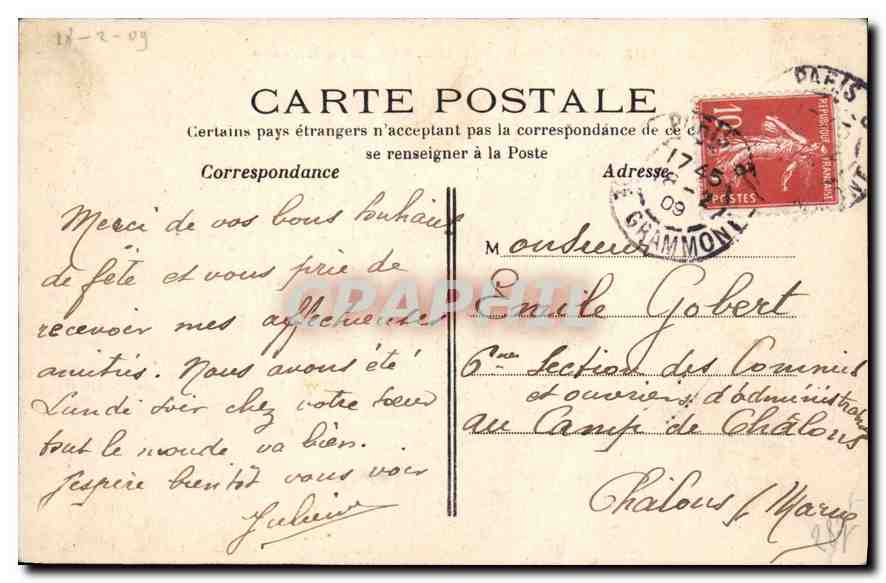 18-2-09
CARTE POSTALE
Certains pays étrangers n'acceptant pas la correspondance de ce c
se renseigner à la Poste
Correspondance
Adresse
PARIS
17 45
09
GRAMMONT
PARIS
10
REPUBLIQUE FRANÇAISE
POSTES
Merci de vos bons souhaits
de fête et vous prie de
recevoir mes affectueuses
amitiés. Nous avons été
Lundi soir chez votre sœur
tout le monde va bien.
J'espère bientôt vous voir
Julienne
Monsieur
Emile Gobert
6me Section des Commis
et ouvriers d'administration
au Camp de Châlons
Châlons s/ Marne
CPAPHIL